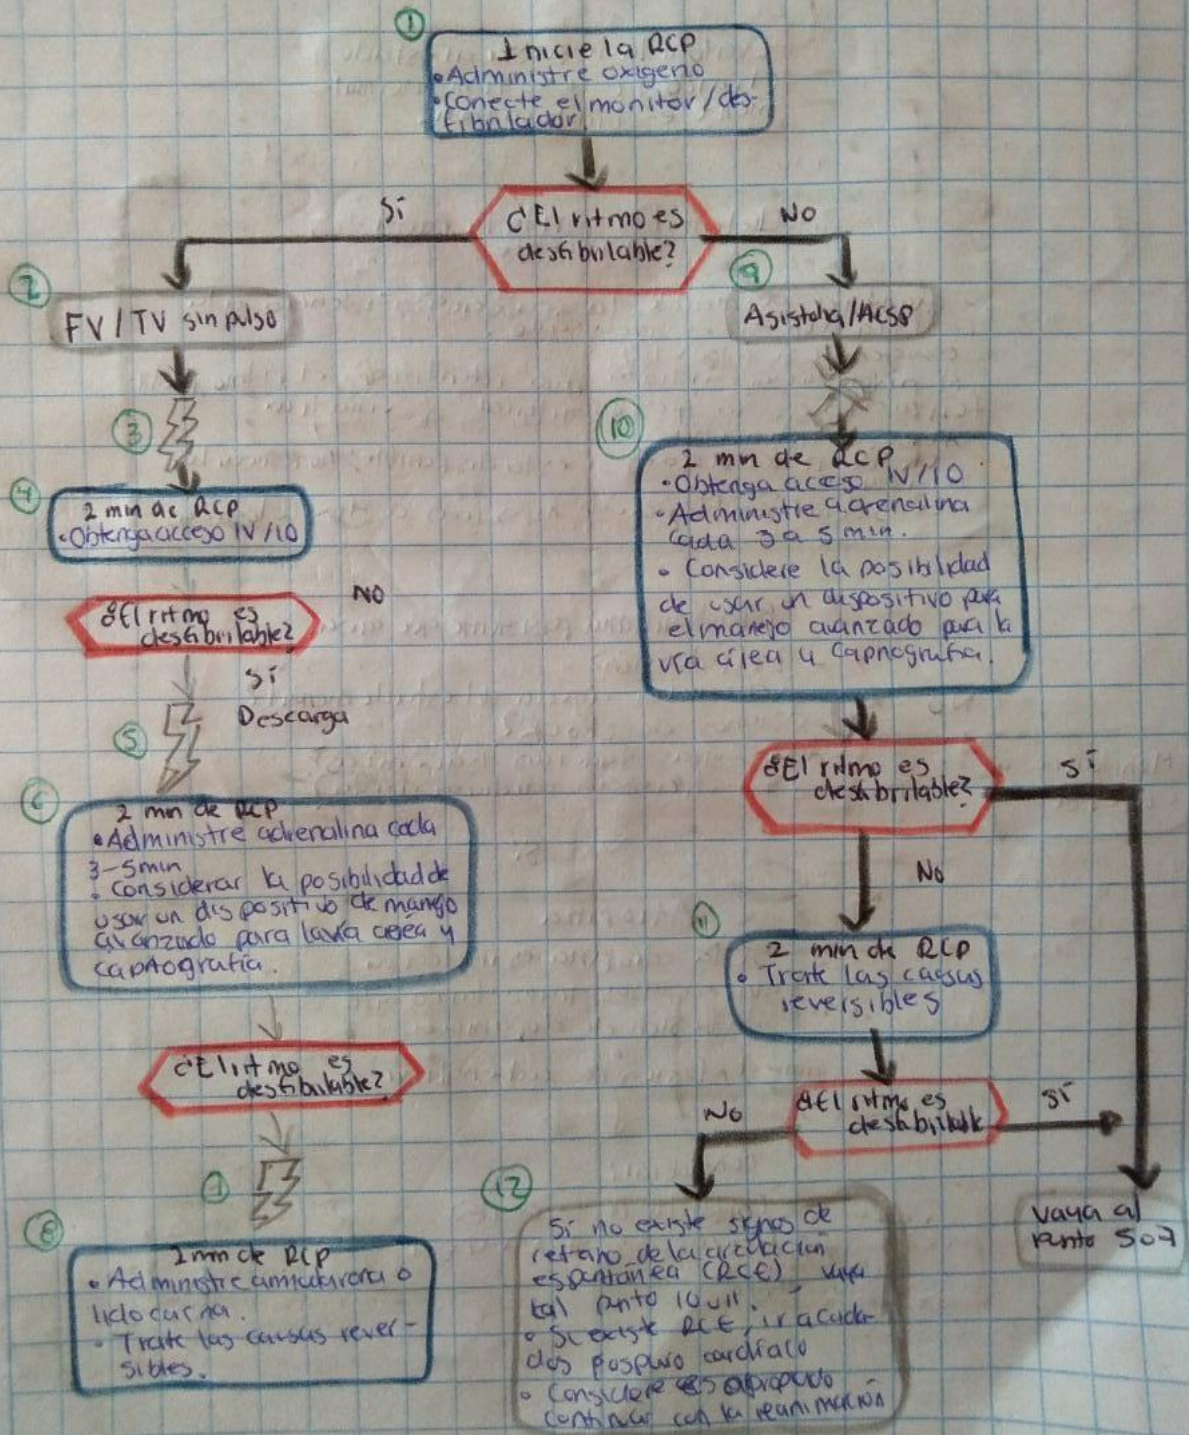 1
Inicie la RCP
• Administre oxigeno
• Conecte el monitor/des-
fibrilador
¿El ritmo es
desfibrilable?
Sí
NO
2
FV/TV sin pulso
3
4
2 min de RCP
• Obtenga acceso IV/IO
¿El ritmo es
desfibrilable?
NO
Sí
5
Descarga
6
2 min de RCP
• Administre adrenalina cada
3-5min
• Considerar la posibilidad de
usar un dispositivo de manejo
avanzado para la vía aérea y
capnografía.
¿El ritmo es
desfibrilable?
7
8
2 min de RCP
• Administre amiodarona o
lidocaína.
• Trate las causas rever-
sibles.
9
Asistolia/AESP
10
2 min de RCP
• Obtenga acceso IV/IO
• Administre adrenalina
cada 3 a 5 min.
• Considere la posibilidad
de usar un dispositivo para
el manejo avanzado para la
vía aérea y capnografía.
¿El ritmo es
desfibrilable?
Sí
No
11
2 min de RCP
• Trate las causas
reversibles
¿El ritmo es
No
Sí
vaya al
punto 5 o 7
12
Si no existe signos de
retorno de la circulación
espontánea (RCE) vaya
al punto 10 u 11.
• Si existe RCE, ir a cuida-
dos
cardíaco
• Considere apropiado
continuar con la reanimación